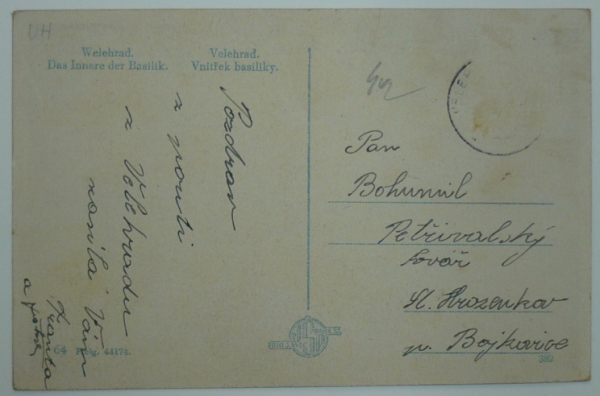 VH
Welehrad.
Das Innere der Basilik.
Velehrad.
Vnitřek basiliky.
Pozdrav
z pouti
z Velehradu
zasílá Vám
Franta
a
Pan
Bohumil
Petřivalský
kovář
St. Hrozenkov
p. Bojkovice
64